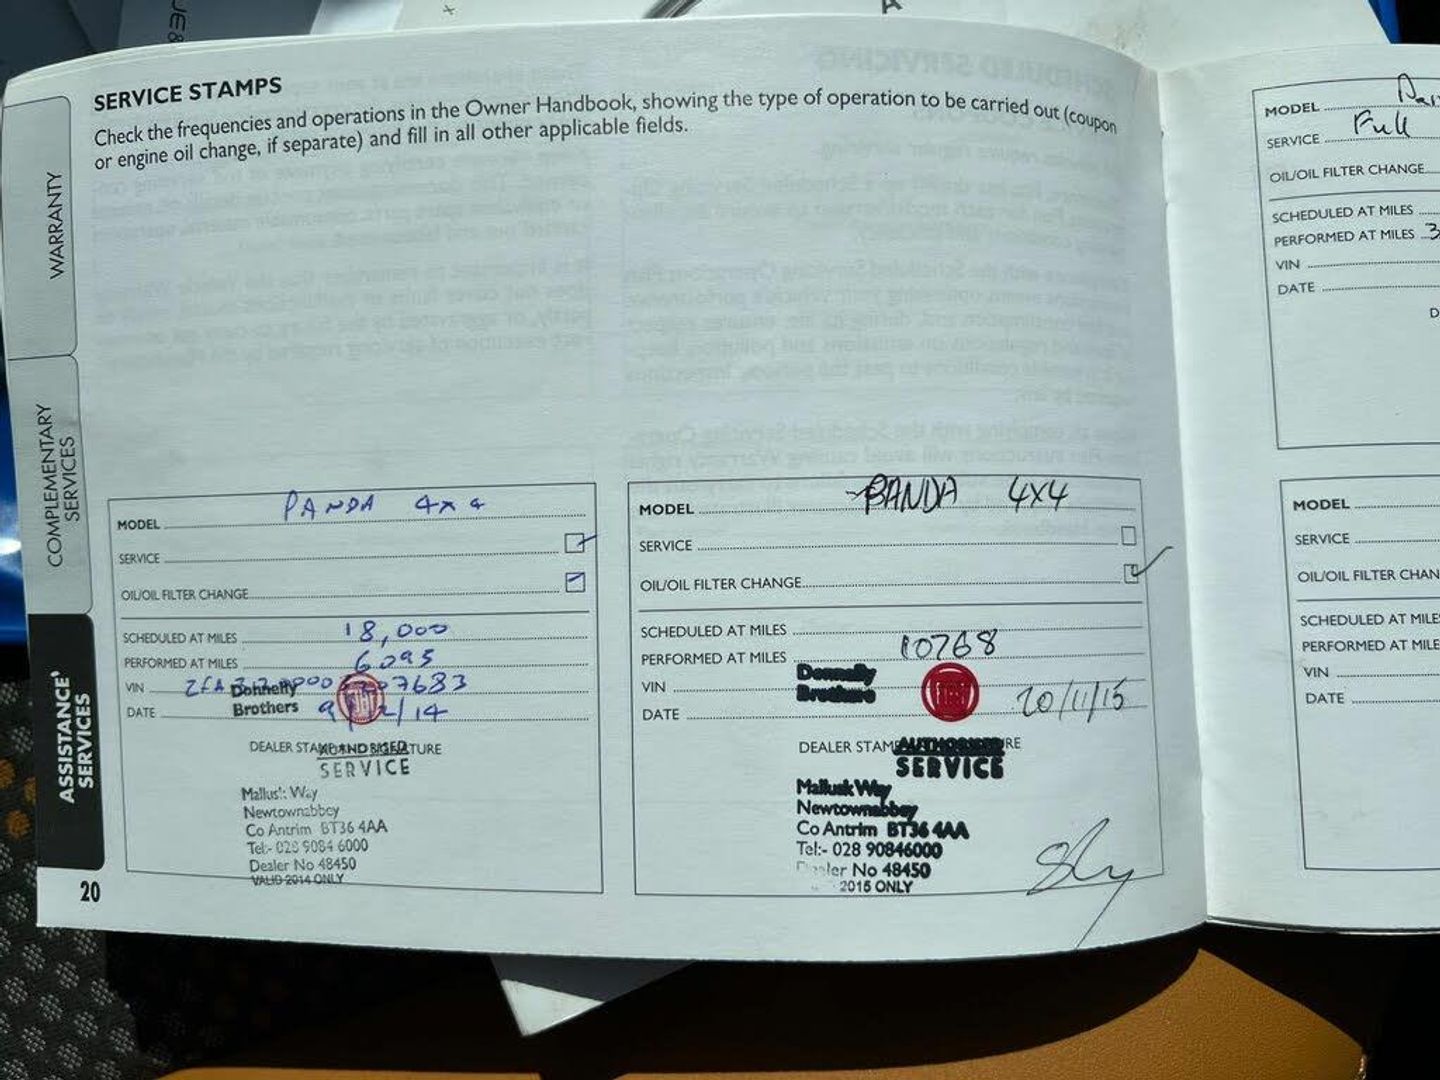 SERVICE STAMPS
Check the frequencies and operations in the Owner Handbook, showing the type of operation to be carried out (coupon
or engine oil change, if separate) and fill in all other applicable fields.
WARRANTY
COMPLEMENTARY
SERVICES
ASSISTANCE'
SERVICES
MODEL PANDA 4x4
SERVICE
OIL/OIL FILTER CHANGE
SCHEDULED AT MILES 18,000
PERFORMED AT MILES 6095
VIN
DATE
Donnelly
Brothers
DEALER STAMP AND SIGNATURE
AUTHORISED
SERVICE
Mallusk Way
Newtownabbey
Co Antrim BT36 4AA
Tel:- 028 9084 6000
Dealer No 48450
VALID 2014 ONLY
20
MODEL PANDA 4X4
SERVICE
OIL/OIL FILTER CHANGE
SCHEDULED AT MILES
PERFORMED AT MILES 10768
VIN
DATE 20/11/15
Donnelly
Brothers
DEALER STAMP
AUTHORISED
SERVICE
Mallusk Way
Newtownabbey
Co Antrim BT36 4AA
Tel:- 028 90846000
Dealer No 48450
2015 ONLY
MODEL
SERVICE Full
OIL/OIL FILTER CHANGE
SCHEDULED AT MILES
PERFORMED AT MILES 3
VIN
DATE
D
MODEL
SERVICE
OIL/OIL FILTER CHAN
SCHEDULED AT MILE
PERFORMED AT MILE
VIN
DATE